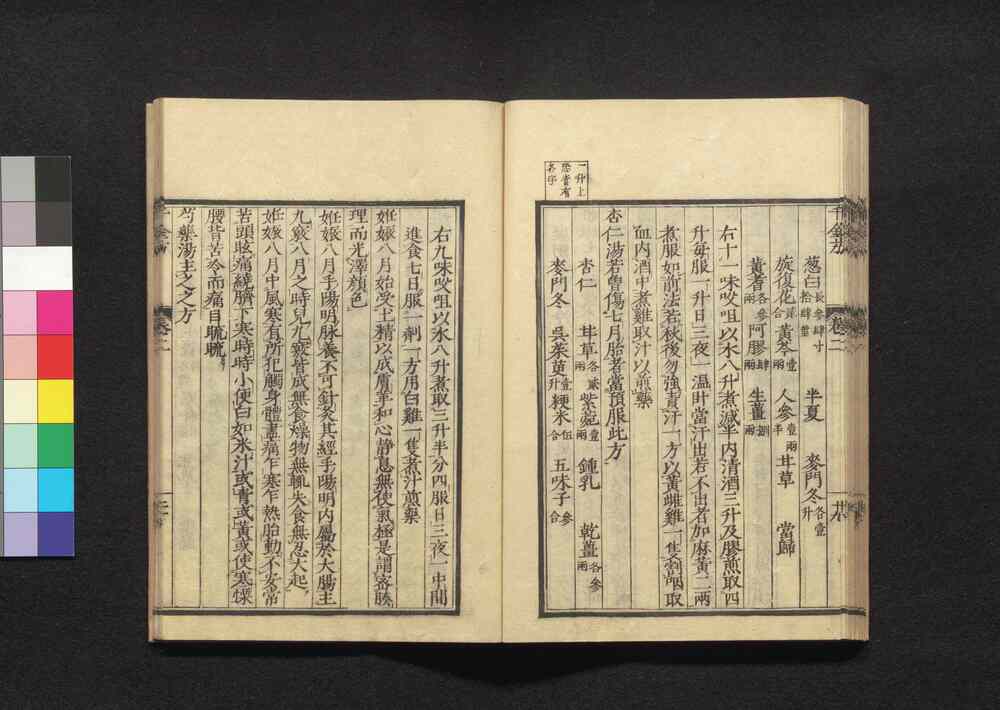 一升上
恐當有
各字
葱白長參肆寸拾肆莖 半夏 麥門冬各壹升
旋復花 合 黃芩壹兩 人參壹兩半 甘草 當歸
黃耆各參兩 阿膠肆兩 生薑捌兩
右十一味㕮咀以水八升煮減半內清酒三升及膠煎取四
升每服一升日三夜一溫臥當汗出若不出者加麻黃二兩
煮服如前法若秋後勿強責汗一方以黃雌雞一隻割咽取
血內酒中煮雞取汁以煎藥
杏仁湯若曾傷七月胎者當預服此方
杏仁 甘草各貳兩 紫菀壹兩 鍾乳 乾薑各參兩
麥門冬 吳茱萸壹升 粳米伍合 五味子參合
千金方
卷二
右九味㕮咀以水八升煮取三升半分四服日三夜一中間
進食七日服一劑一方用白雞一隻煮汁煎藥
妊娠八月始受土精以成膚革和心靜息無使氣極是謂密腠
理而光澤顏色
妊娠八月手陽明脉養不可針灸其經手陽明內屬於大腸主
九竅八月之時兒九竅皆成無食燥物無輒失食無忍大起
妊娠八月中風寒有所犯觸身體盡痛乍寒乍熱胎動不安常
苦頭眩痛繞臍下寒時時小便白如米汁或青或黃或使寒慄
腰背苦冷而痛目䀮䀮
芍藥湯主之之方
卷二